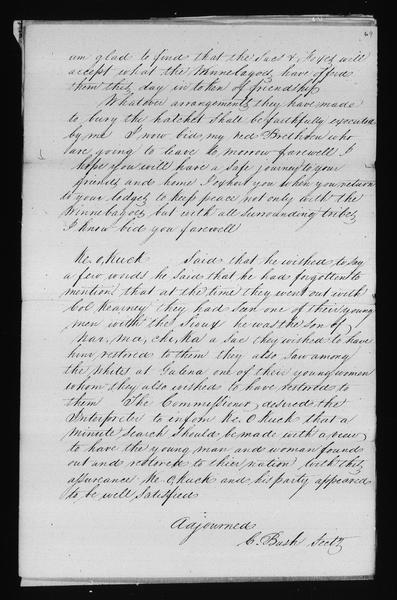 69
am glad to find that the Sacs & Foxes will
accept what the Winnebagoes have offered
them this day in token of friendship
Whatever arrangements they have made
to bury the hatchet shall be faithfully executed
by me I now bid my red Brethern who
are going to leave to morrow farewell I
hope you will have a safe journey to your
friends and home I exhort you when you return
to your lodges to keep peace not only with the
Winnebagoes but with all surrounding tribes
I know bid you farewell
Ke. O, Kuck Said that he wished to say
a few words he said that he had forgotten to
mention that at the time they went out with
Col Kearney they had seen one of their young
men with the Sioux he was the son of
Kar, ma, chi, ka a Sac they wished to have
him restored to them they also saw among
the whites at Galena one of their young women
whom they also wished to have restored to
them The Commissioner desired the
Interpreter to inform Ke. O Kuck that a
minute search should be made with a view
to have the young man and woman found
out and restored to their nation With this
assurance Ke. O, Kuck and his party appeared
to be well satisfied
Adjourned
C. Bush Secty